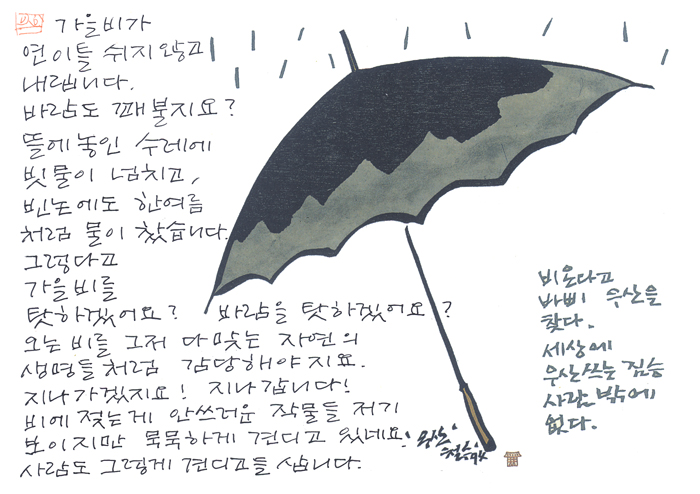 가을비가
연이틀 쉬지않고
내립니다.
바람도 꽤 불지요?
뜰에 놓인 수레에
빗물이 넘치고,
빈논에도 한여름
처럼 물이 찼습니다.
그렇다고
가을비를
탓하겠어요? 바람을 탓하겠어요?
오는 비를 그저 다 맞는 자연의
생명들처럼 감당해야지요.
지나가겠지요! 지나갑니다!
비에 젖는게 안쓰러운 작물들 저기
보이지만 묵묵하게 견디고 있네요.
사람도 그렇게 견디고들 삽니다.
비온다고
바삐 우산을
찾다.
세상에
우산쓰는 짐승
사람밖에
없다.